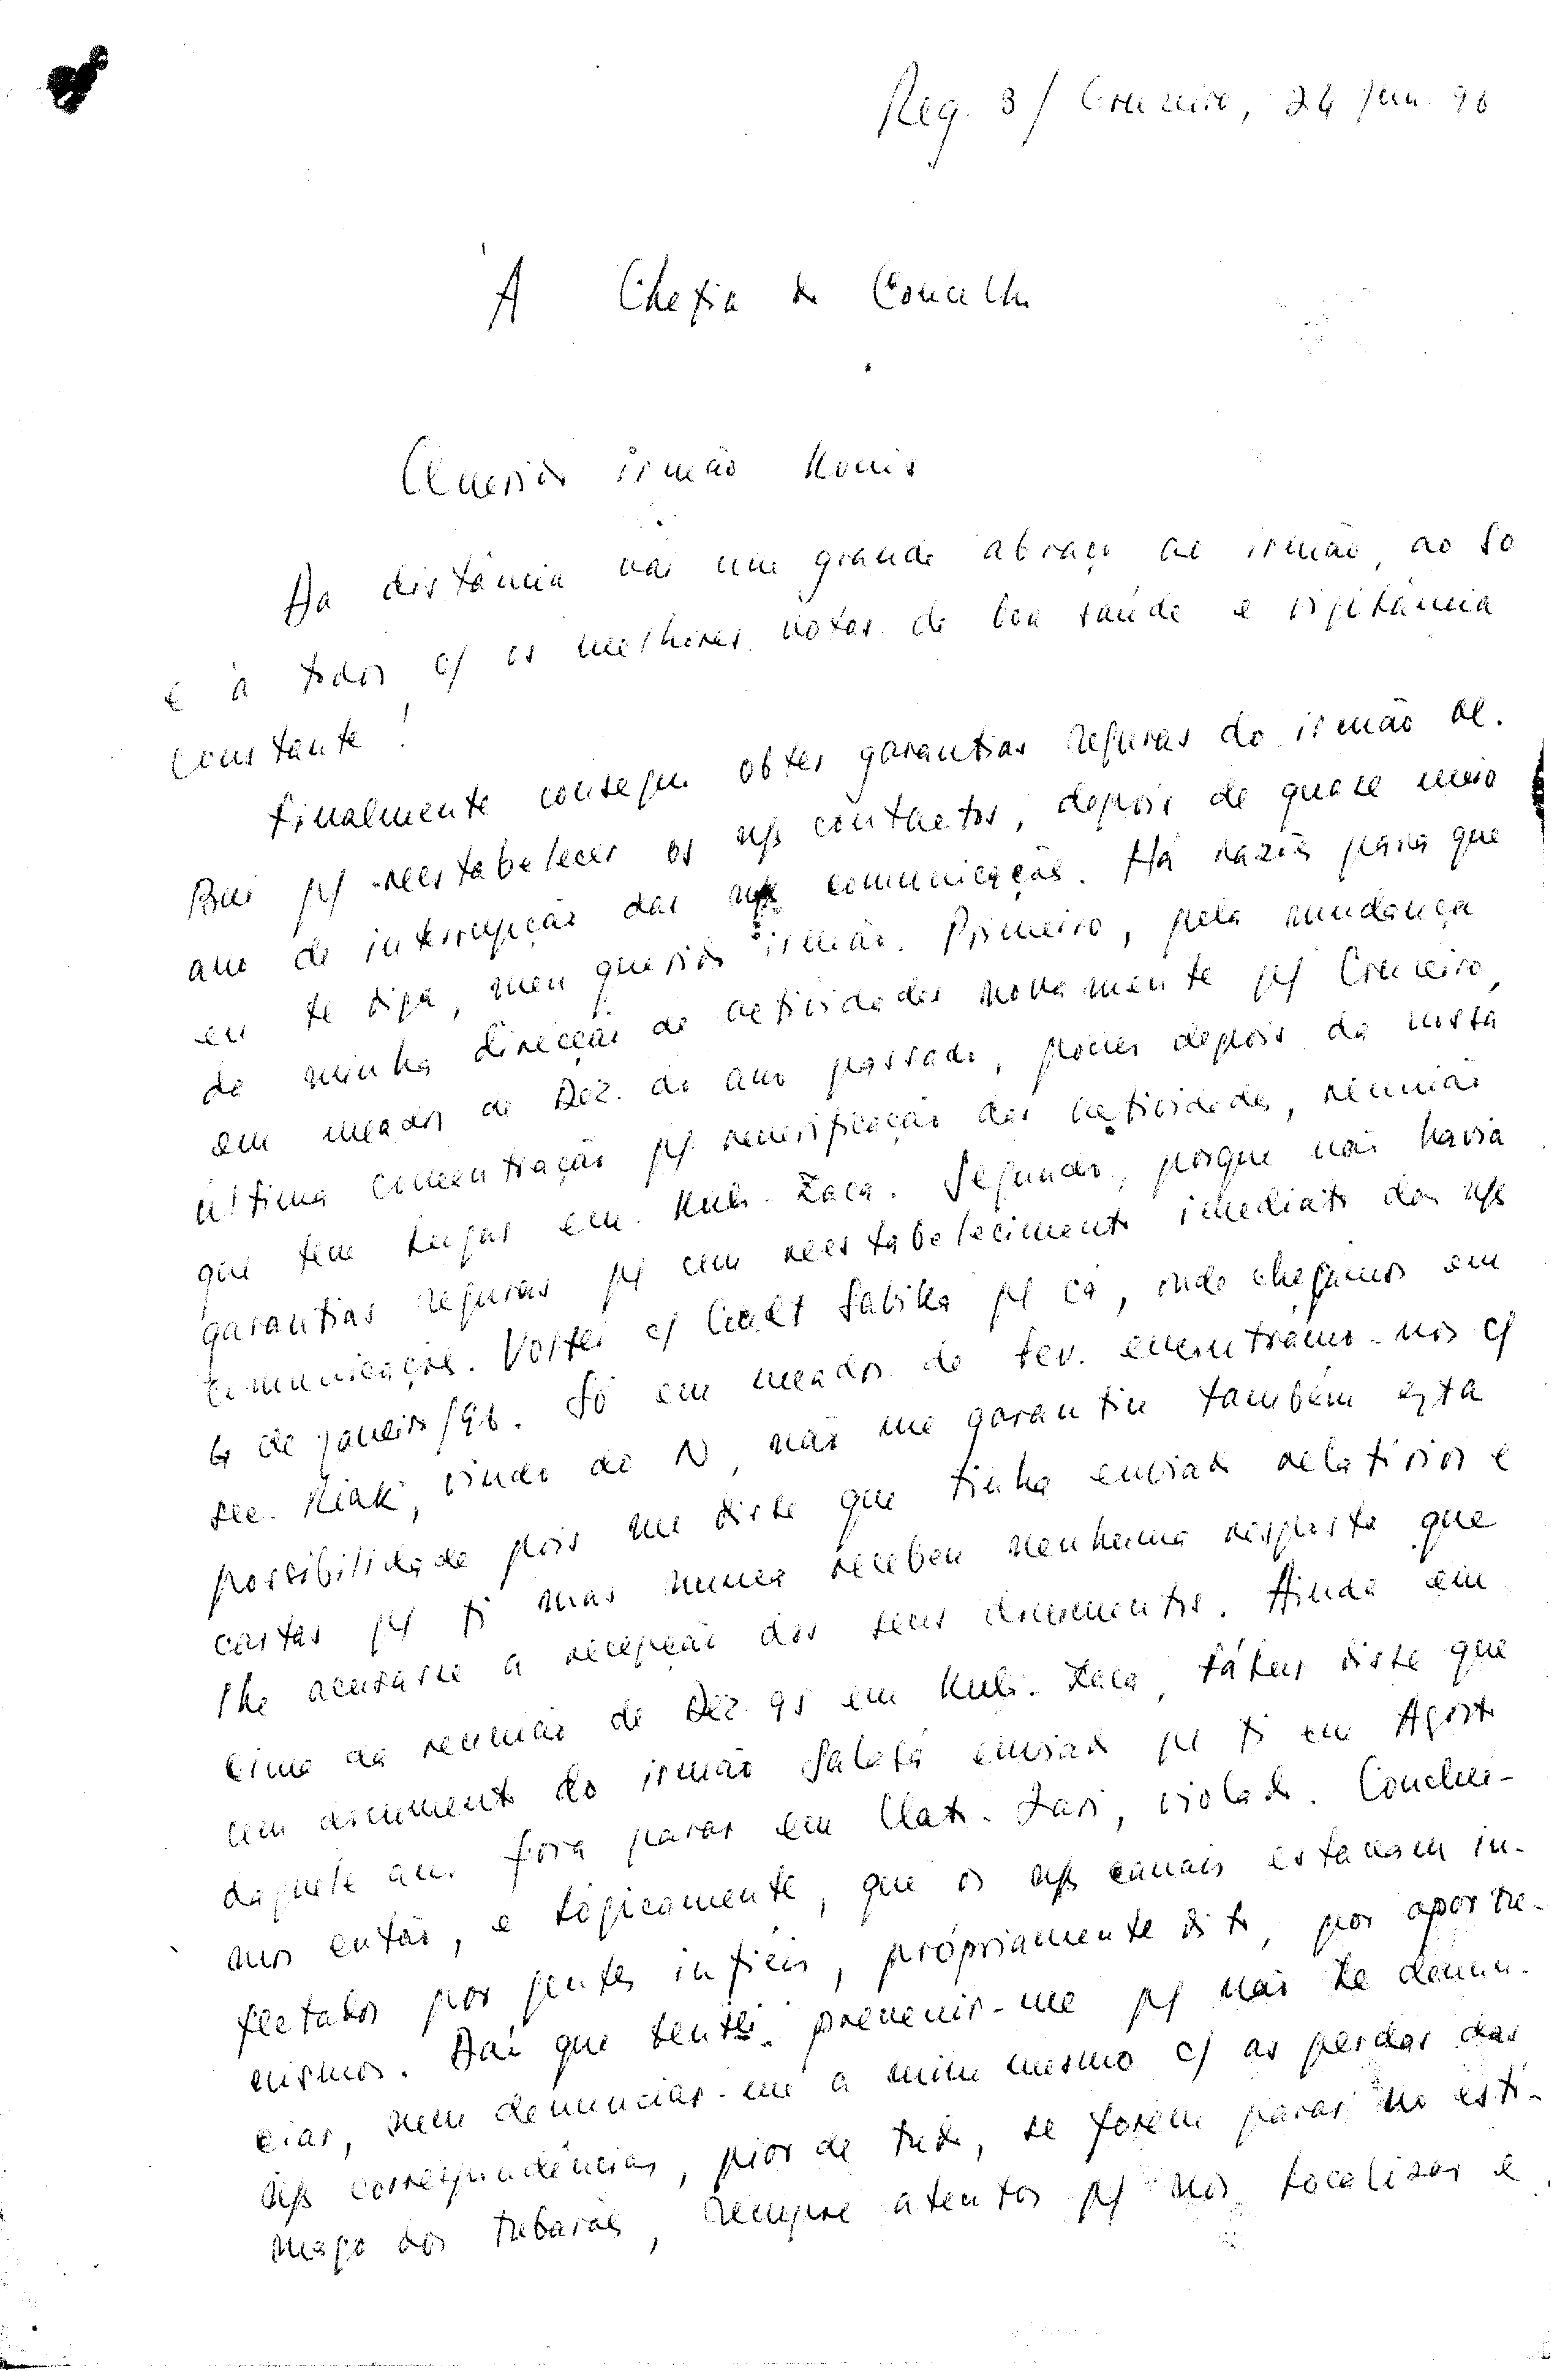 Reg. 3/ Cruzeiro, 24 Jun. 96
À Chefia do Concelho
Querido irmão Konis
Da distância vai um grande abraço ao irmão, ao So
e à todos, c/ os melhores votos de boa saúde e vigilância
constante!
Finalmente consegui obter garantias seguras do irmão
p/ reestabelecer os nss contactos, depois de quase meio
ano de interrupção das comunicações. Há razões para que
eu te diga, meu querido irmão. Primeiro, pela mudança
da minha direcção de actividades novamente p/ Cruzeiro,
em meados de Dez. do ano passado, poucos depois da nossa
última concentração p/ reverificação das actividades, reunião
que teve lugar em Kulu-Laca. Segundo, porque não havia
garantias seguras p/ um reestabelecimento imediato das nss
comunicações. Voltei c/ Cmdt Sabika p/ cá, onde chegámos em
4 de janeiro/96. Só em meados de Fev. encontrámo-nos c/
sec. Riak, vindo do N, não me garantiu também esta
possibilidade pois me disse que tinha enviado relatórios e
cartas p/ ti mas nunca recebeu nenhuma resposta que
lhe acusasse a recepção dos seus documentos. Ainda em
cima da reunião de Dez. 95 em Kulu-Laca, disse que
um documento do irmão Salafá enviado p/ ti em Agosto
daquele ano fora parar em violado. Conclui-
mos então, e lògicamente, que os nss canais estavam in-
fectados por gentes infiéis, própriamente dito, por oportu-
nismos. Daí que tentei prevenir-me p/ não te denun-
ciar, nem denunciar-me a mim mesmo c/ as perdas das
nss correspondências, pior de tudo, se forem parar no estô-
mago dos tubarões, sempre atentos p/ nos localizar e